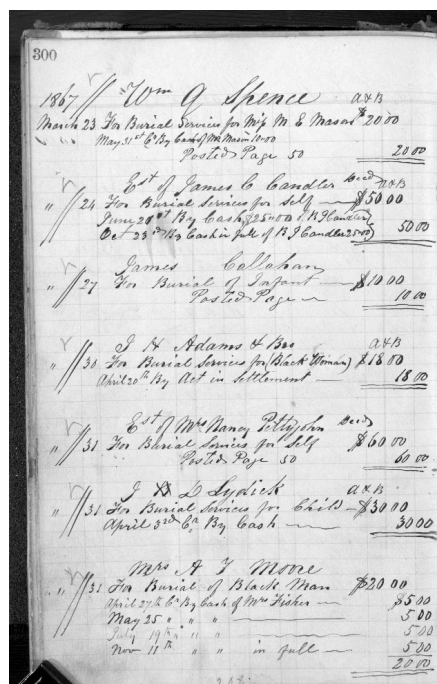 300
1867 // Wm G Spence A & B
March 23 For Burial Services for Miss M. E Mason $20 00
May 31st Cr By Cash of Mr Mason 10.00
Posted Page 50 20 00
Est of James C Candler Decd A & B
" // 24 For Burial Services for Self $50 00
June 20st By Cash $25000. B J Candler
Oct 23rd By Cash in full of B J Candler 2500 50 00
James Callahan
" // 27 For Burial of Infant $10 00
Posted Page 10 00
J H Adams & Bro A & B
" // 30 For Burial Services for (Black Woman) $18 00
April 20th By Act in Settlement 18 00
Est of Mrs Nancy Pettyjohn Decd
" // 31 For Burial Services for Self $60 00
Posted Page 50 60 00
J D Lydick A & B
" // 31 For Burial Services for Child $30 00
April 3rd Cr By Cash 30 00
Mrs A F Moore
" // 31 For Burial of Black Man $20 00
April 27th Cr By Cash of Mrs Fisher $5 00
May 25 " " " 5 00
July 19th " " " 5 00
Nov 11th " " in full 5 00
20 00